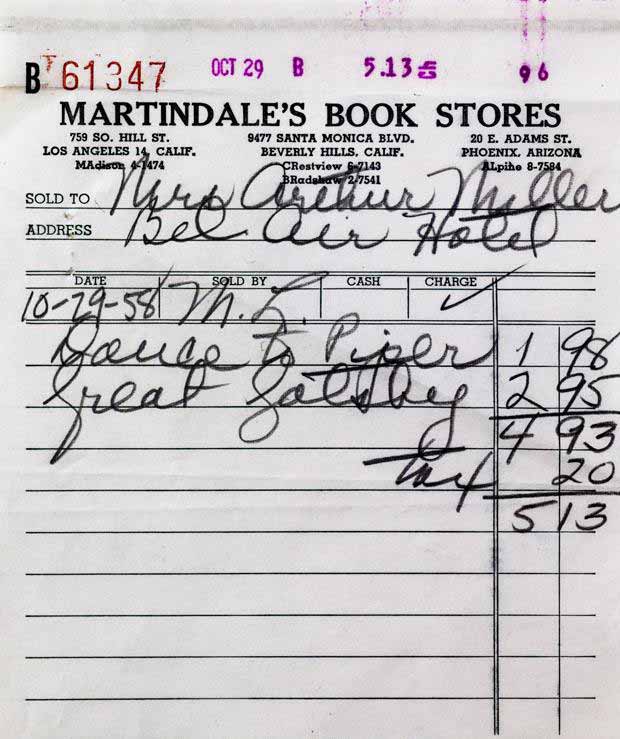 BT 61347 OCT 29 B 5.13 96
MARTINDALE'S BOOK STORES
759 SO. HILL ST. 9477 SANTA MONICA BLVD. 20 E. ADAMS ST.
LOS ANGELES 14, CALIF. BEVERLY HILLS, CALIF. PHOENIX, ARIZONA
MAdison 4-1474 CRestview 6-7143 ALpine 8-7584
BRadshaw 2-7541
SOLD TO Mrs Arthur Miller
ADDRESS Bel Air Hotel
DATE SOLD BY CASH CHARGE
10-29-58 M.L. ✓
Dance to Piper 1 98
Great Gatsby 2 95
4 93
tax 20
5 13